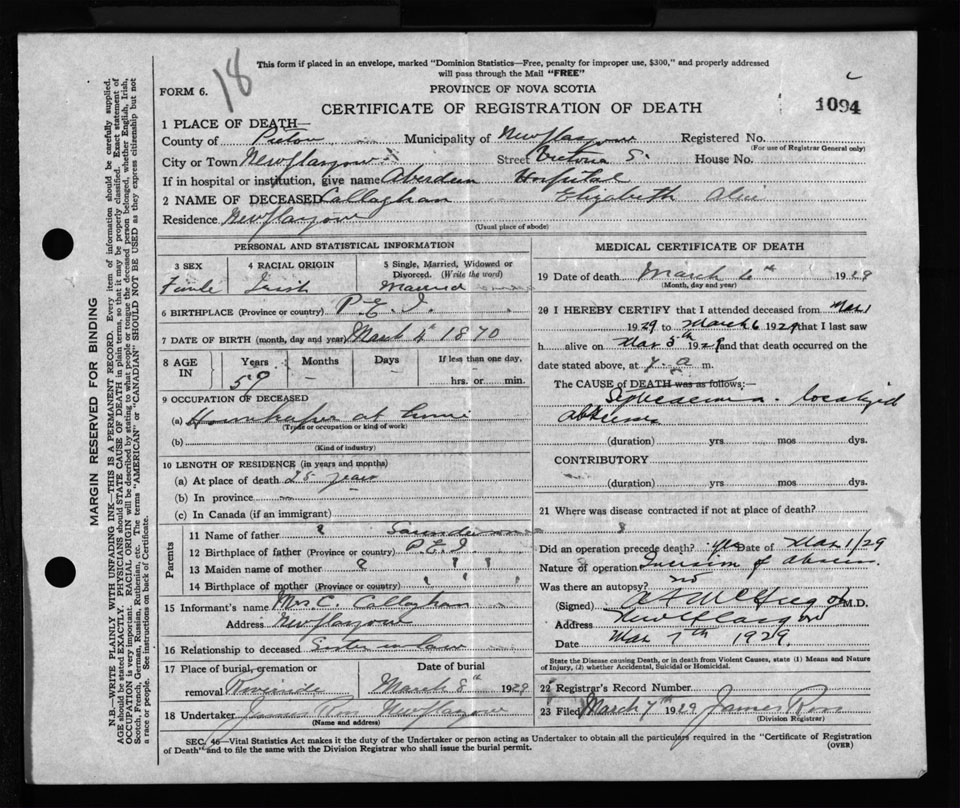 18
This form if placed in an envelope, marked "Dominion Statistics—Free, penalty for improper use, $300," and properly addressed
will pass through the Mail "FREE"
FORM 6.
PROVINCE OF NOVA SCOTIA
CERTIFICATE OF REGISTRATION OF DEATH
1094
1 PLACE OF DEATH—
County of Pictou Municipality of New Glasgow Registered No.
(For use of Registrar General only)
City or Town New Glasgow Street Victoria S. House No.
If in hospital or institution, give name Aberdeen Hospital
2 NAME OF DECEASED Callaghan Elizabeth Alice
Residence New Glasgow
(Usual place of abode)
PERSONAL AND STATISTICAL INFORMATION
3 SEX
Female
4 RACIAL ORIGIN
Irish
5 Single, Married, Widowed or
Divorced. (Write the word)
Married
6 BIRTHPLACE (Province or country) P.E.I.
7 DATE OF BIRTH (month, day and year) March 4th 1870
8 AGE IN
Years
59
Months
—
Days
—
If less than one day,
hrs. or min.
9 OCCUPATION OF DECEASED
(a) at home
(Trade or occupation or kind of work)
(b)
(Kind of industry)
10 LENGTH OF RESIDENCE (in years and months)
(a) At place of death 25 years
(b) In province
(c) In Canada (if an immigrant)
Parents
11 Name of father ?
12 Birthplace of father (Province or country) P.E.I.
13 Maiden name of mother ? ? ?
14 Birthplace of mother (Province or country)
15 Informant's name Mrs C. Callaghan
Address New Glasgow
16 Relationship to deceased Sister in law
17 Place of burial, cremation or
removal Riverside
Date of burial
March 8th 1929
18 Undertaker James Ross New Glasgow
(Name and address)
MEDICAL CERTIFICATE OF DEATH
19 Date of death March 6th 1929
(Month, day and year)
20 I HEREBY CERTIFY that I attended deceased from Mar 1
1929 to March 6 1929 that I last saw
h alive on Mar 5th 1929 and that death occurred on
date stated above, at 7. a m.
The CAUSE of DEATH was as follows:—
Septicaemia. localized
abscess
(duration) yrs mos dys.
CONTRIBUTORY
(duration) yrs mos dys.
21 Where was disease contracted if not at place of death?
Did an operation precede death? yes Date of Mar 1/29
Nature of operation Incision of abscess.
Was there an autopsy? no
(Signed) M.D.
Address New Glasgow
Date Mar 7th 1929.
State the Disease causing Death, or in Death from Violent Causes, state (1) Means and Nature
of Injury, (2) whether Accidental, Suicidal or Homicidal.
22 Registrar's Record Number
23 Filed March 7th 1929 James Ross
(Division Registrar)
SEC. 46—Vital Statistics Act makes it the duty of the Undertaker or person acting as Undertaker to obtain all the particulars required in the "Certificate of Registration
of Death" and to file the same with the Division Registrar who shall issue the burial permit.
(OVER)
MARGIN RESERVED FOR BINDING
N.B.—WRITE PLAINLY WITH UNFADING INK—THIS IS A PERMANENT RECORD. Every item of information should be carefully supplied.
AGE should be stated EXACTLY. PHYSICIANS should STATE CAUSE OF DEATH in plain terms, so that it may be properly classified. Exact statement of
OCCUPATION is very important. RACIAL ORIGIN will be described by stating to what people or tongue the deceased person belonged, whether English, Irish,
Scotch, French, German, Russian, Ruthenian, etc. The terms "AMERICAN" or "CANADIAN" SHOULD NOT BE USED as they express citizenship but not
a race or people. See instructions on back of Certificate.